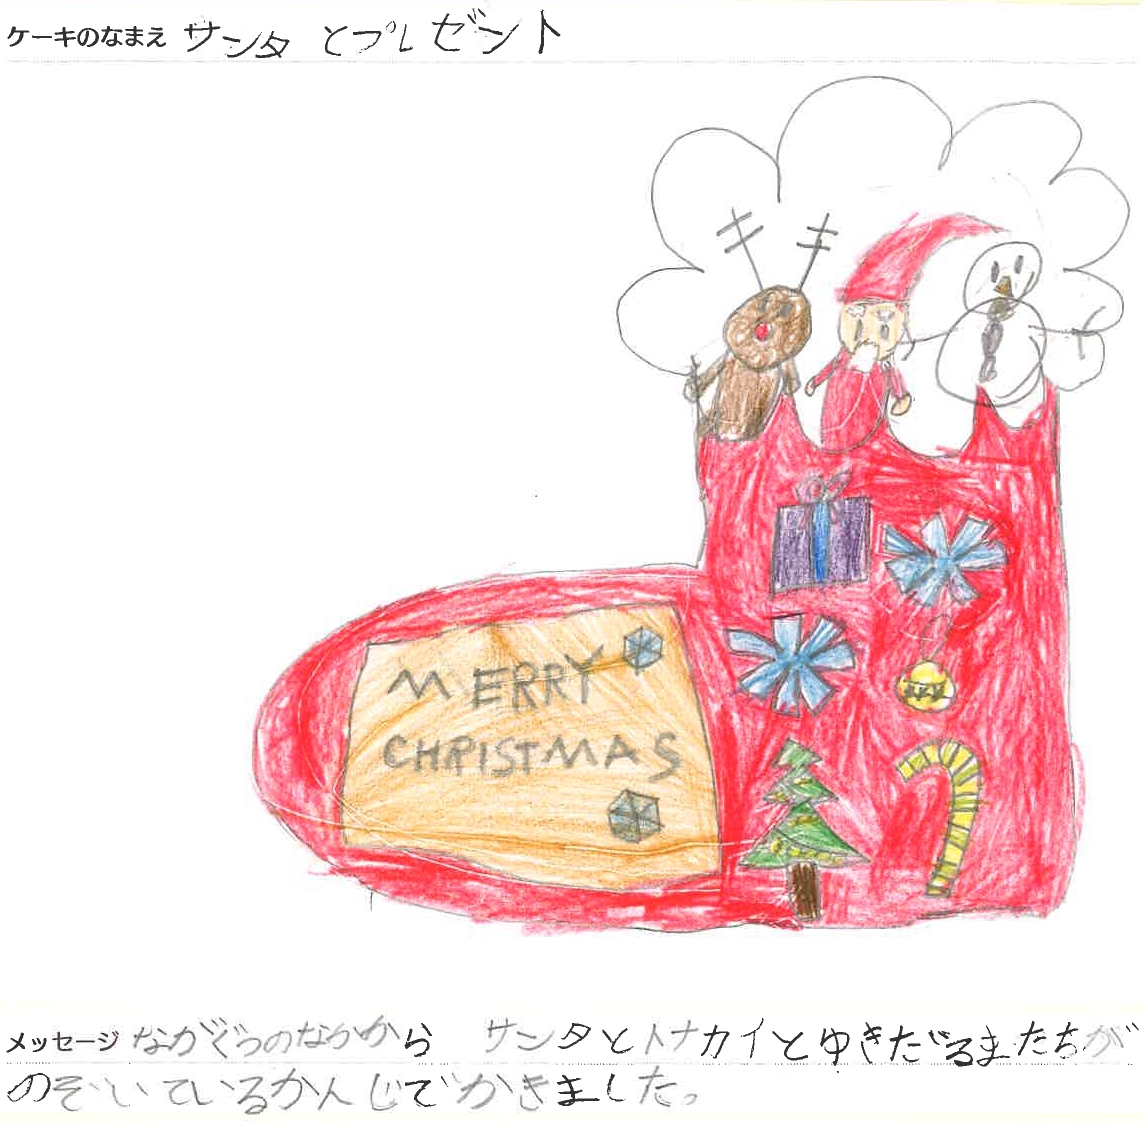 ケーキのなまえ サンタ とプレゼント
MERRY
CHRISTMAS
メッセージ ながぐつのなかから サンタとトナカイとゆきだるまたちが
のぞいているかんじでかきました。